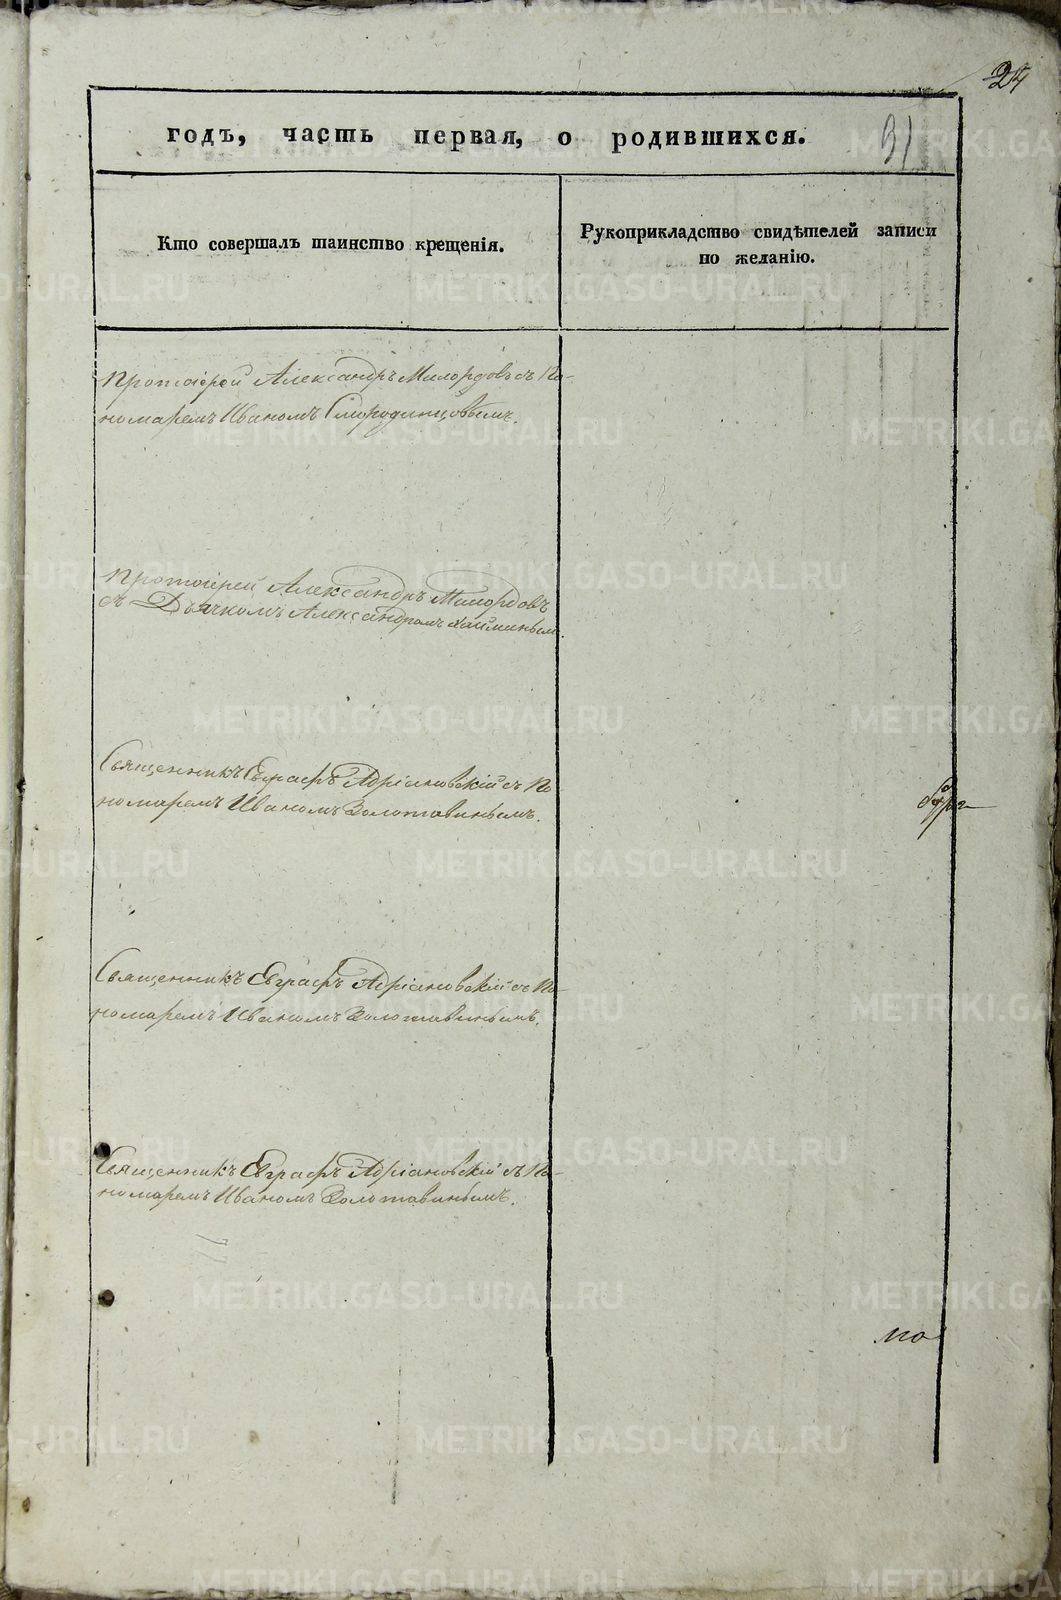 24
годъ, часть первая, о родившихся.
31
Кто совершалъ таинство крещенія.
Рукоприкладство свидѣтелей записи
по желанію.
Протоіерей Александръ Милордовъ съ По-
номаремъ Иваномъ Смородинцовымъ.
Протоіерей Александръ Милордовъ
съ Дьячкомъ Александромъ
Священникъ Евграфъ Адріановскій съ По
номаремъ Иваномъ Золотавинымъ.
Священникъ Евграфъ Адріановскій съ По-
номаремъ Иваномъ Золотавинымъ.
Священникъ Евграфъ Адріановскій съ По-
номаремъ Иваномъ Золотавинымъ.
по
METRIKI.GASO-URAL.RU